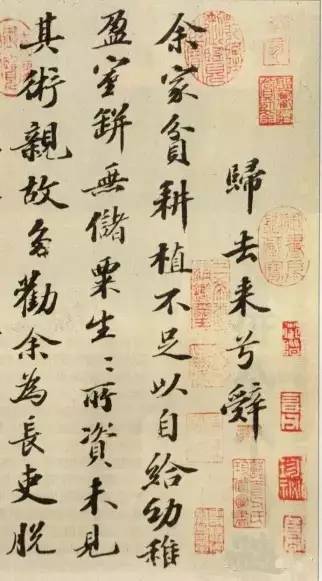 歸去来兮辭
余家貧耕植不足以自給幼稚
盈室缾無儲粟生〻所資未見
其術親故多勸余為長吏脱